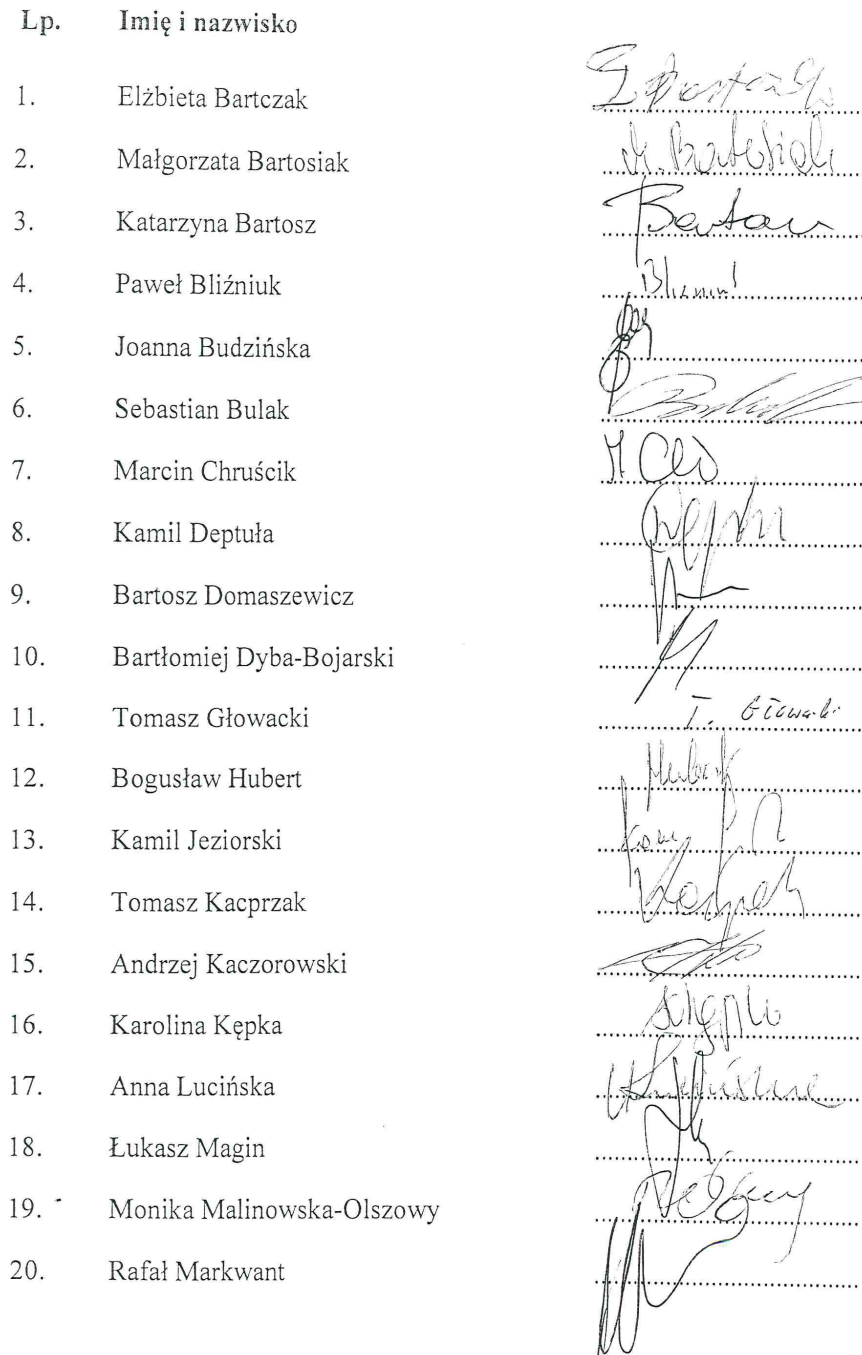 Lp. Imię i nazwisko
1. Elżbieta Bartczak
2. Małgorzata Bartosiak M. Bartosiak
3. Katarzyna Bartosz
4. Paweł Bliźniuk
5. Joanna Budzińska
6. Sebastian Bulak
7. Marcin Chruścik
8. Kamil Deptuła
9. Bartosz Domaszewicz
10. Bartłomiej Dyba-Bojarski
11. Tomasz Głowacki T. Głowacki
12. Bogusław Hubert Hubert
13. Kamil Jeziorski
14. Tomasz Kacprzak
15. Andrzej Kaczorowski
16. Karolina Kępka
17. Anna Lucińska
18. Łukasz Magin
19. Monika Malinowska-Olszowy
20. Rafał Markwant